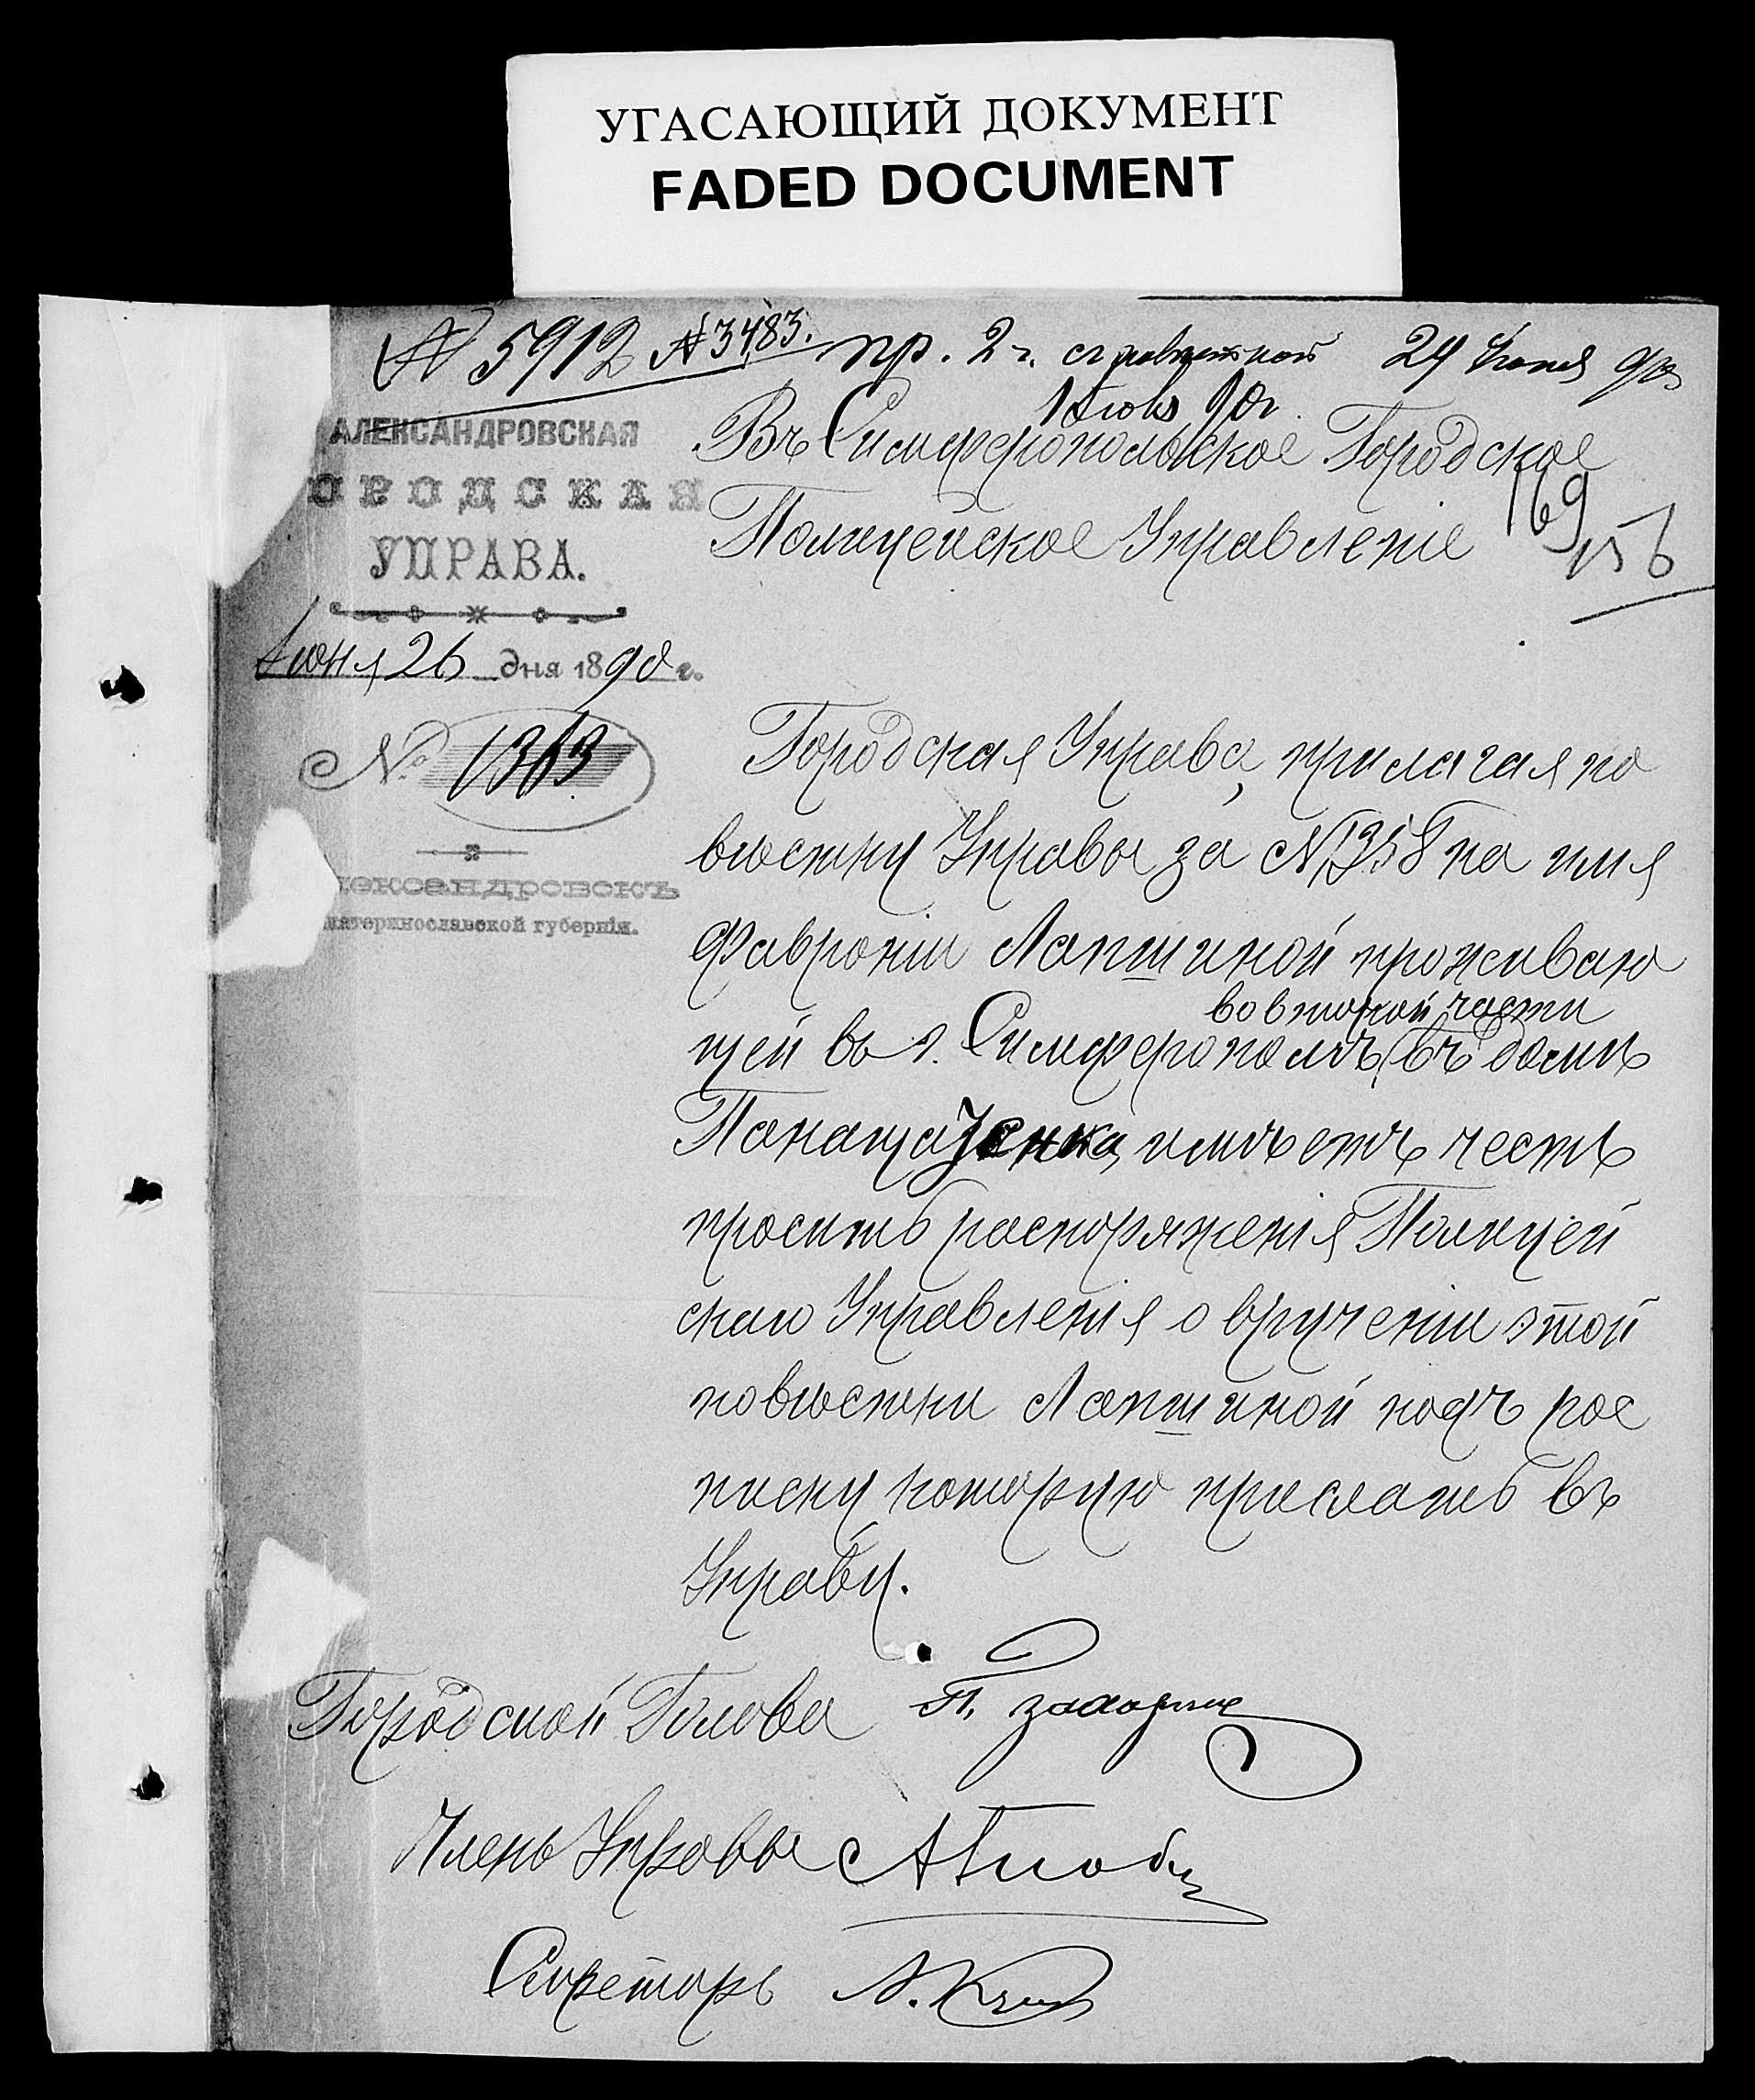 УГАСАЮЩИЙ ДОКУМЕНТ
FADED DOCUMENT
№ 5912 № 3483. пр. 2 ч. 29 Іюня 90
1 Іюль 90г.
АЛЕКСАНДРОВСКАЯ
ОРОДСКАЯ
УПРАВА.
Іюня 26 дня 1890 г.
№ 1363
лександровскъ
катеринославской губерніи.
Въ Симферопольское Городское
Полицейское Управленіе
169
156
Городская Управа, прилагая по
вѣстку Управы за № 1358 на имя
Февроніи Лапшиной проживаю
щей въ г. Симферополѣ, во второй части
въ домѣ
Панащатенка, имѣетъ честь
просить распоряженія Полицей
скаго Управленія о врученіи этой
повѣстки Лапшиной подъ рос
писку которую прислать въ
Управу.
Городской Голова П. Захарин
Членъ Управы
Секретарь